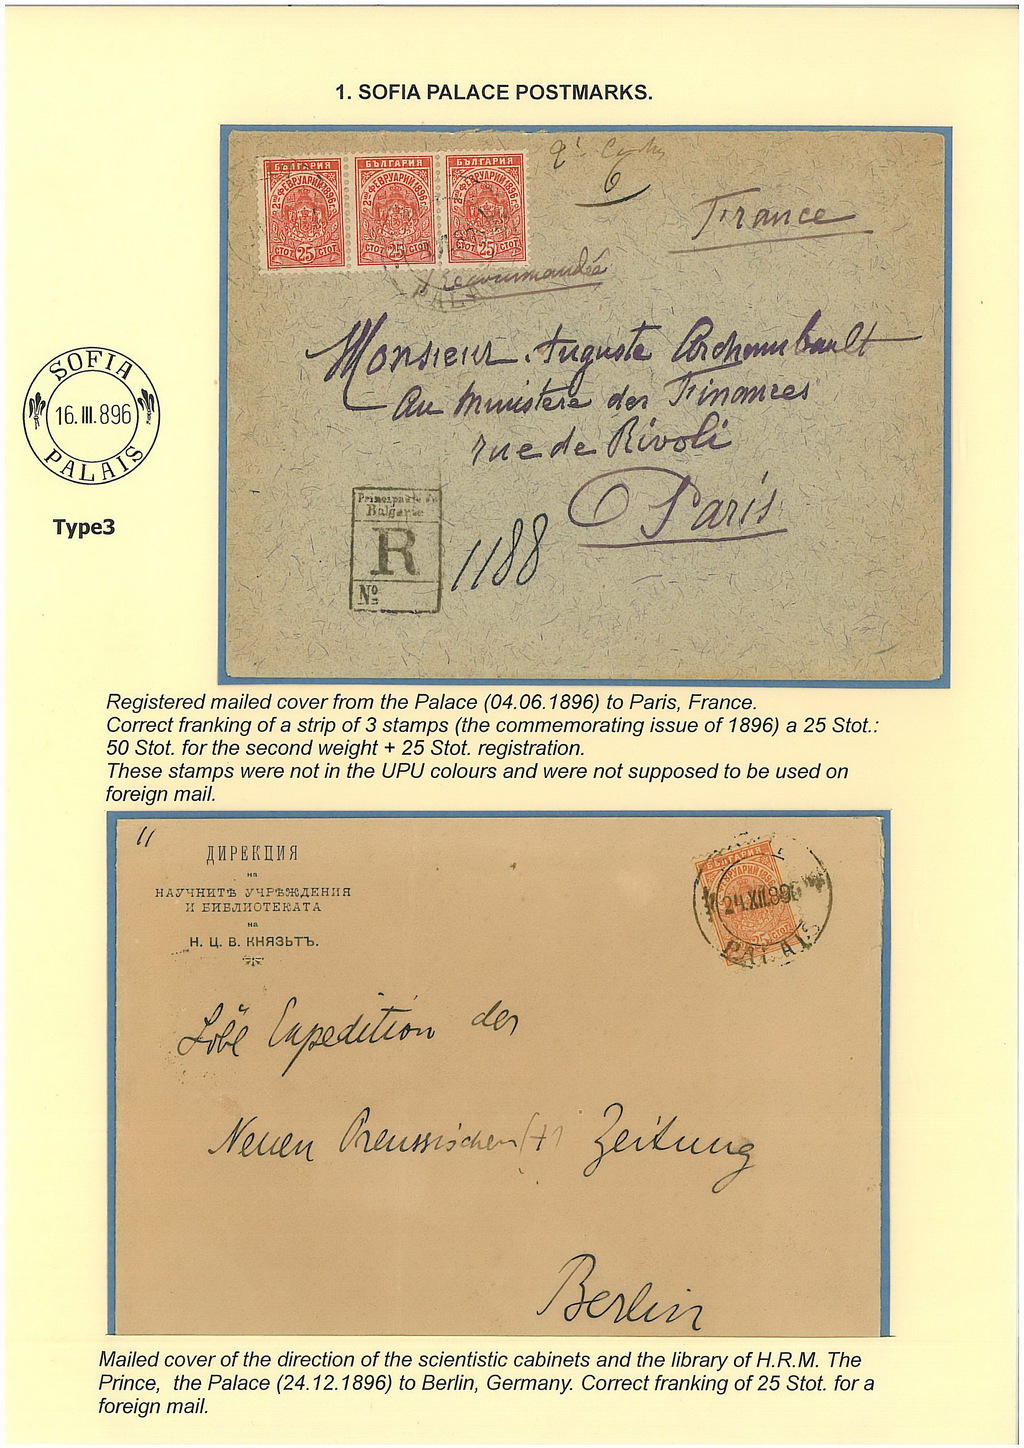 1. SOFIA PALACE POSTMARKS.
БЪЛГАРИЯ БЪЛГАРИЯ БЪЛГАРИЯ
2ИЙ ФЕВРУАРИЙ 1896 г. 2ИЙ ФЕВРУАРИЙ 1896 г. 2ИЙ ФЕВРУАРИЙ 1896 г.
СТОТ. 25 СТОТ. СТОТ. 25 СТОТ. СТОТ. 25 СТОТ.
6
France
Recommandée
PALA
Monsieur Auguste Archambault
Au Ministère des Finances
rue de Rivoli
Paris
SOFIA
16.III.896
PALAIS
Type3
Principauté de
Bulgarie
R
№
1188
Registered mailed cover from the Palace (04.06.1896) to Paris, France.
Correct franking of a strip of 3 stamps (the commemorating issue of 1896) a 25 Stot.:
50 Stot. for the second weight + 25 Stot. registration.
These stamps were not in the UPU colours and were not supposed to be used on
foreign mail.
11
ДИРЕКЦИЯ
на
НАУЧНИТѢ УЧРѢЖДЕНИЯ
И БИБЛИОТЕКАТА
на
Н. Ц. В. КНЯЗЬТЪ.
БЪЛГАРИЯ
ФЕВРУАРИЙ 1896
25 СТОТ.
24.XII.896
PALAIS
Löbl Expedition der
Neuen Preussischen (+) Zeitung
Berlin
Mailed cover of the direction of the scientistic cabinets and the library of H.R.M. The
Prince, the Palace (24.12.1896) to Berlin, Germany. Correct franking of 25 Stot. for a
foreign mail.